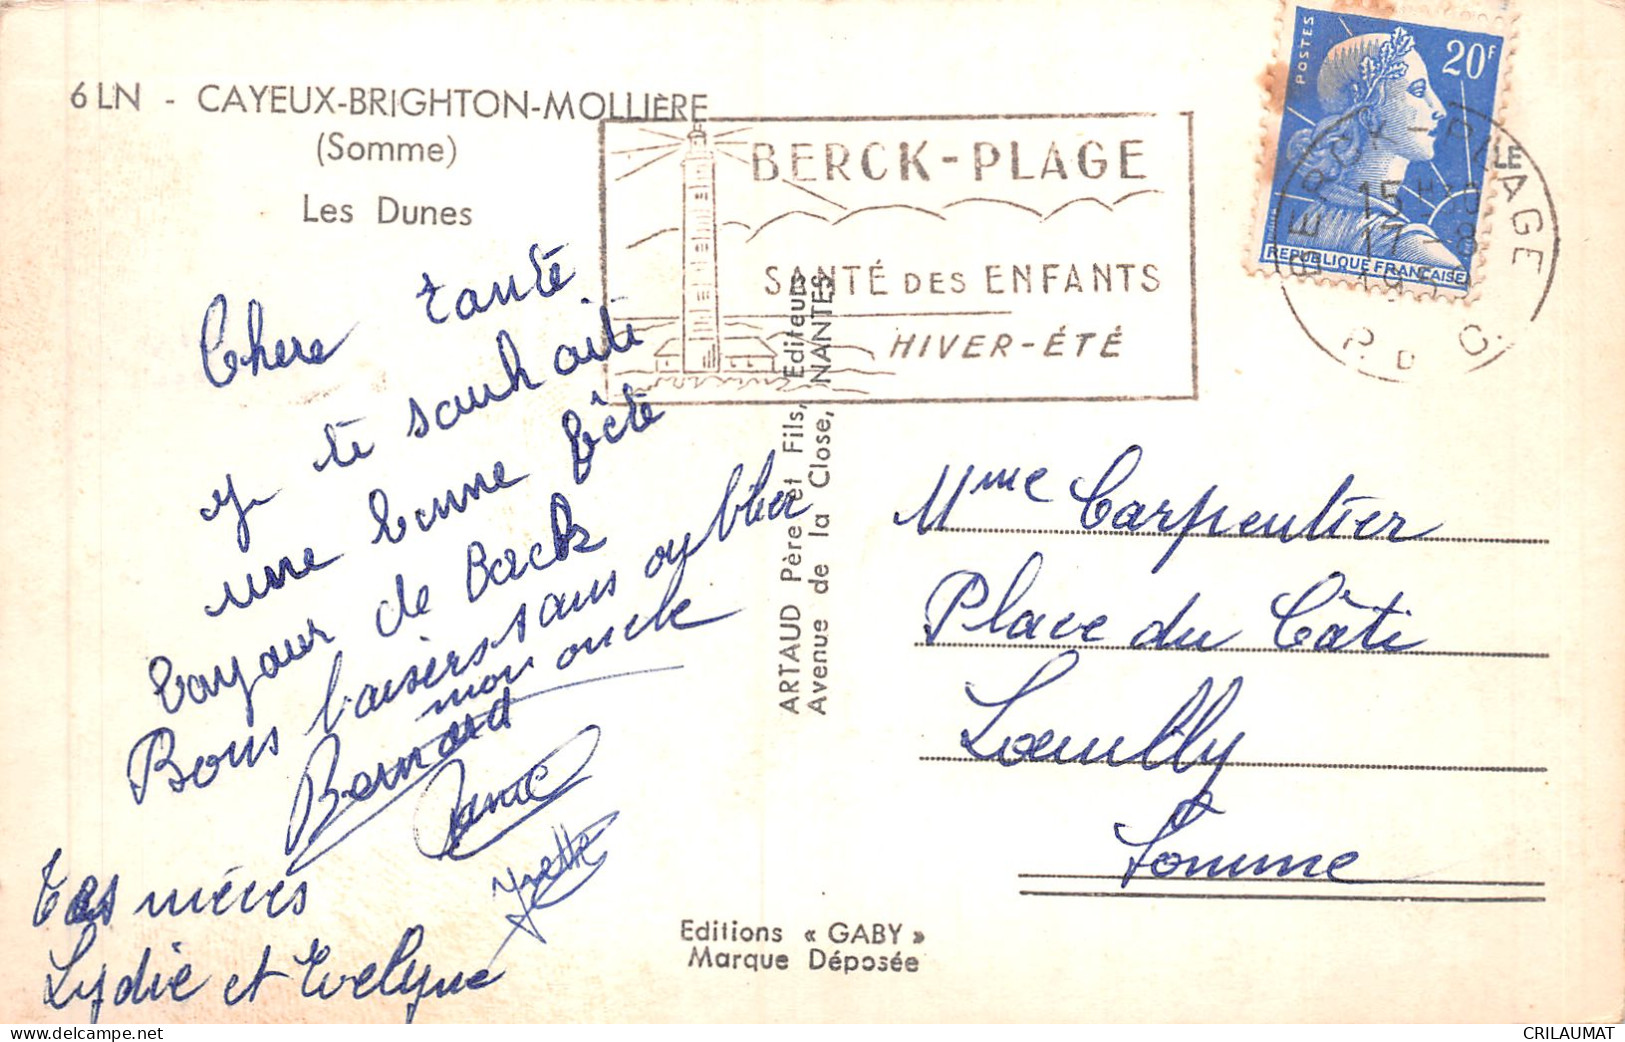 6 LN - CAYEUX-BRIGHTON-MOLLIÈRE
(Somme)
Les Dunes
BERCK-PLAGE
SANTÉ DES ENFANTS
HIVER-ÉTÉ
POSTES
20F
REPUBLIQUE FRANÇAISE
BERCK-PLAGE
15 H30
17 -8
P. D
Chere tante
je te souhaite
une bonne fête
de
Bons baisers sans oublier
mon oncle
Bernard
Yvette
nièces
Lydie et Evelyne
ARTAUD Père et Fils, Editeurs
Avenue de la Close, NANTES
Mme Carpentier
Place du
Somme
Editions « GABY »
Marque Déposée
CRILAUMAT